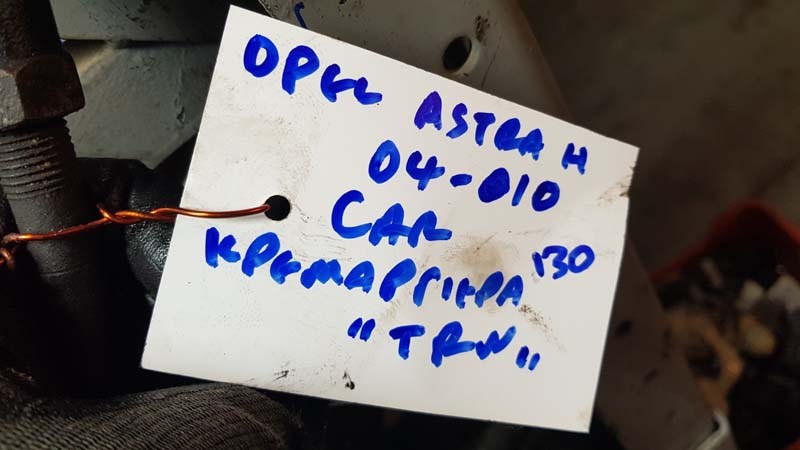 OPEL ASTRA H
04-010
CAR
ΚΡΕΜΑΡΓΙΕΡΑ 130
"TRW"